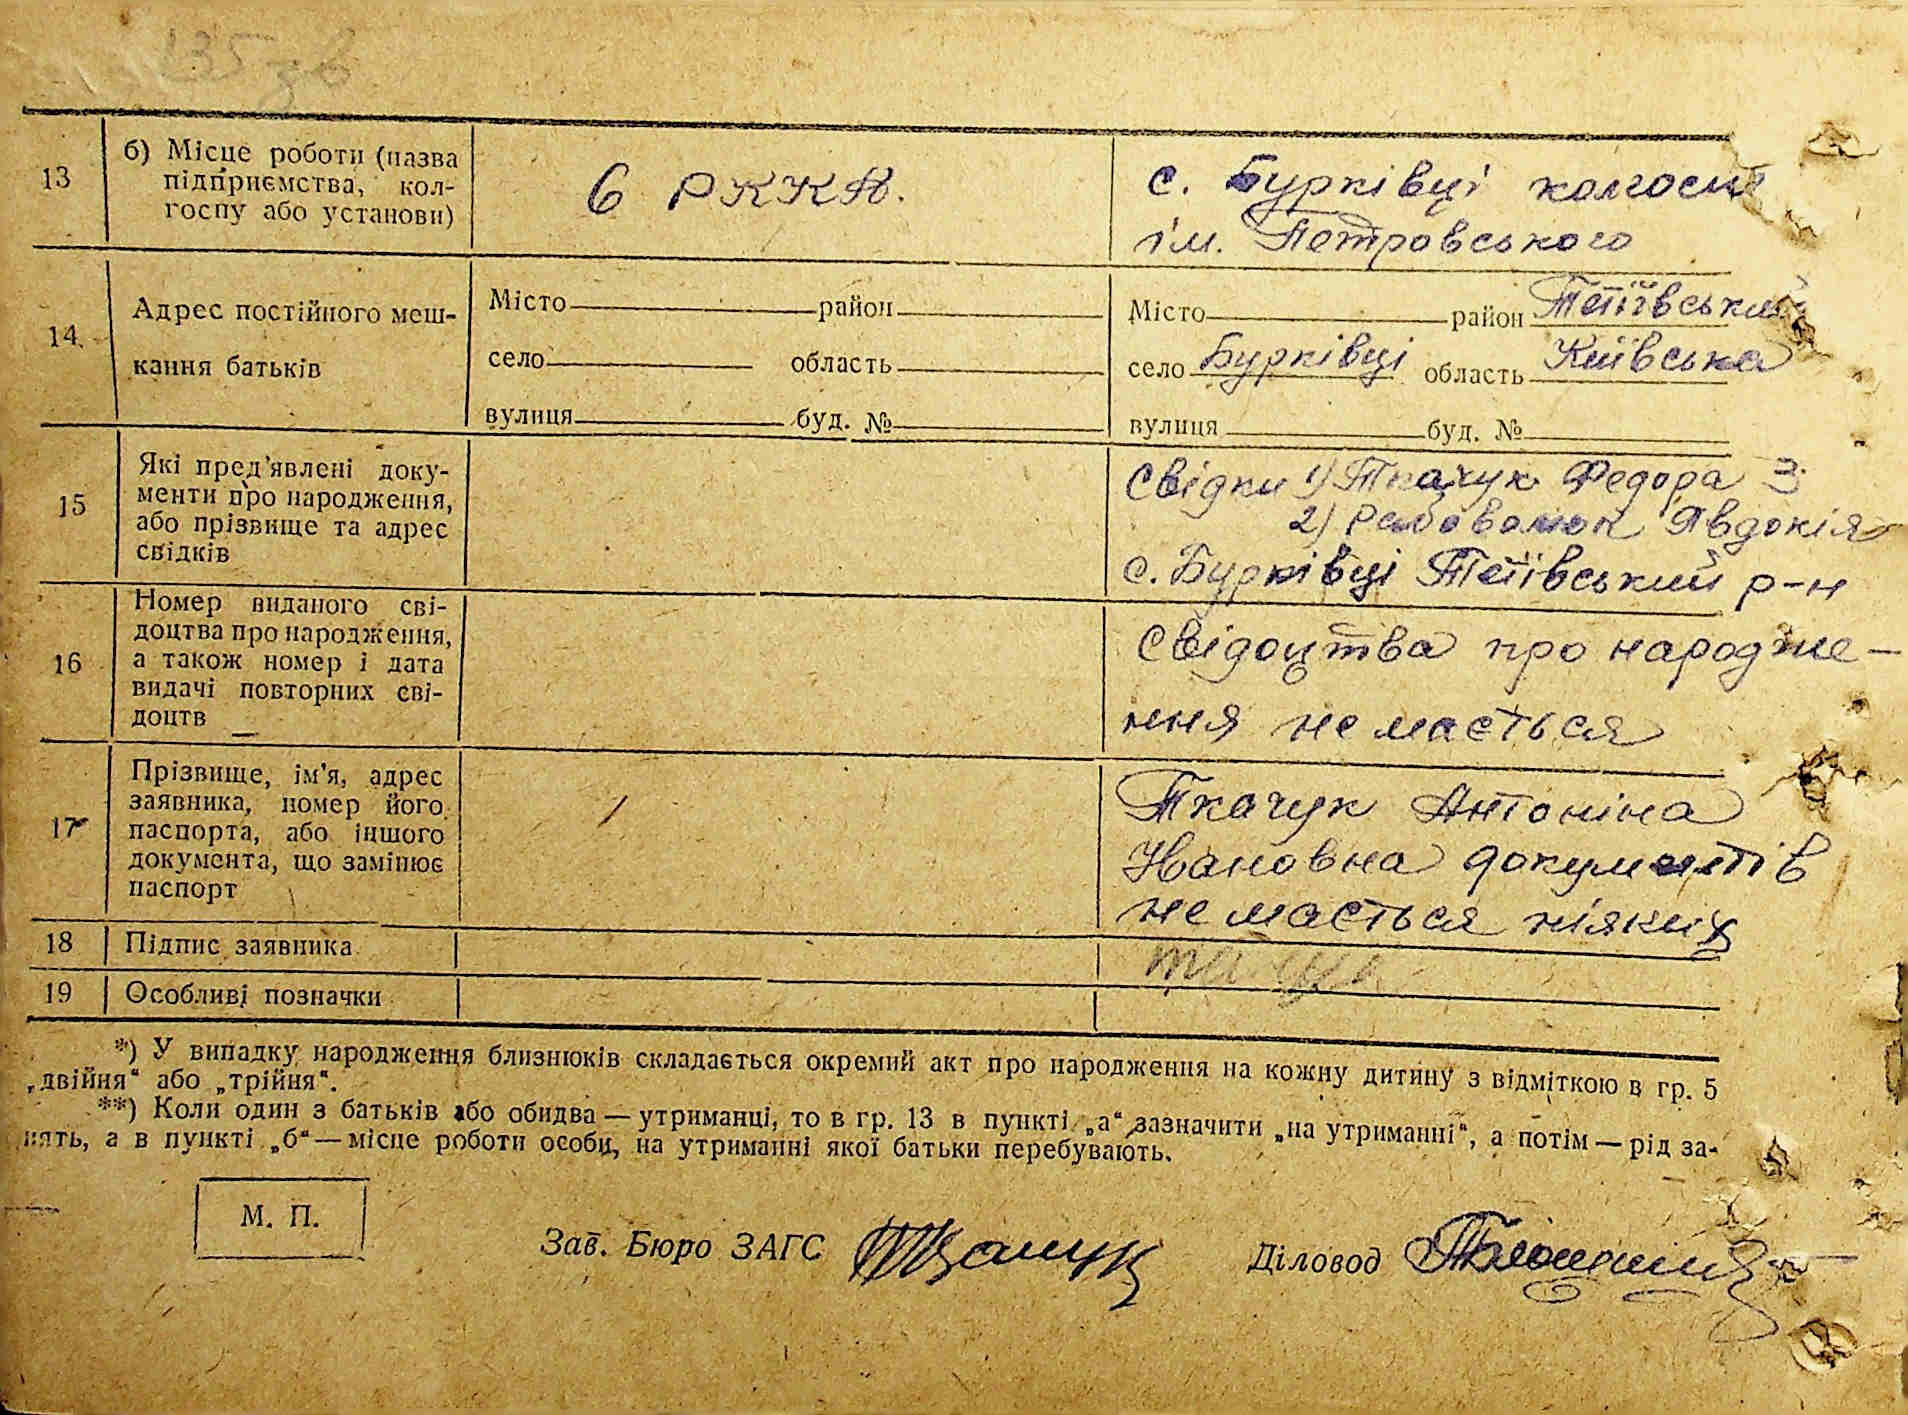 135 зв
13
б) Місце роботи (назва
підприємства, кол-
госпу або установи)
в РККА.
с. Бурківці колгосп
ім. Петровського
14
Адрес постійного меш-
кання батьків
Місто район
село область
вулиця буд. №
Місто район Тетіївський
село Бурківці область Київська
вулиця буд. №
15
Які пред'явлені доку-
менти про народження,
або прізвище та адрес
свідків
Свідки 1) Ткачук Федора З.
2) Явдокія
с. Бурківці Тетіївський р-н
16
Номер виданого сві-
доцтва про народження,
а також номер і дата
видачі повторних сві-
доцтв
Свідоцтва про народже-
ння не мається
17
Прізвище, ім'я, адрес
заявника, номер його
паспорта, або іншого
документа, що замінює
паспорт
Ткачук Антоніна
Івановна документів
не мається ніяких
18
Підпис заявника
19
Особливі позначки
*) У випадку народження близнюків складається окремий акт про народження на кожну дитину з відміткою в гр. 5
„двійня“ або „трійня“.
**) Коли один з батьків або обидва — утриманці, то в гр. 13 в пункті „а“ зазначити „на утриманні“, а потім — рід за-
нять, а в пункті „б“ — місце роботи особи, на утриманні якої батьки перебувають.
М. П.
Зав. Бюро ЗАГС
Діловод